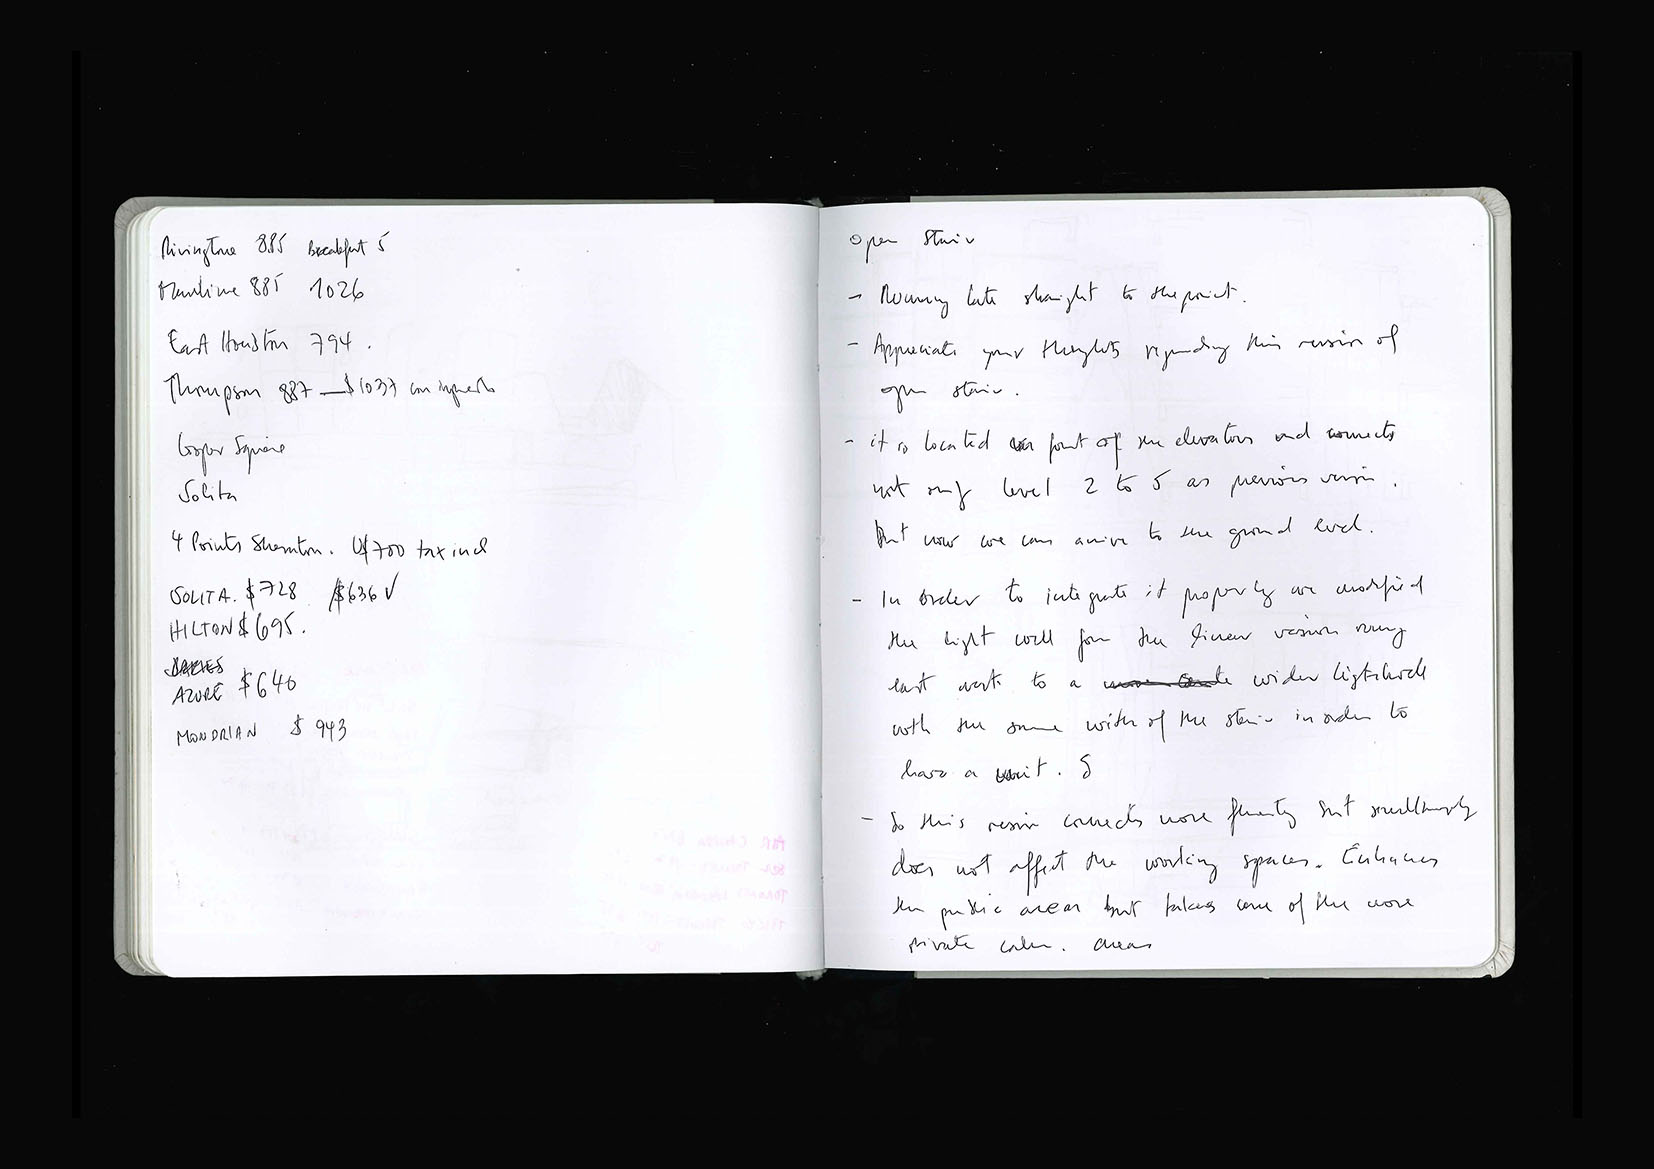 Rivingtone 885 Breakfast 5
Maritime 885 1026
East Houston 794.
Thompson 887 — $1037 con impuesto
Cooper Square
Solita
4 Points Sheraton. U$700 tax incl
SOLITA. $728 $636 √
HILTON $695.
AZURE $640
MONDRIAN $ 943
open stair
- Running late straight to the point.
- Appreciate your thoughts regarding this version of
open stair.
- it is located in front of the elevators and connects
not only level 2 to 5 as previous version.
But now we can arrive to the ground level.
- In order to integrate it properly we modified
the light well from the linear version runing
east west to a wider lightwell
with the same width of the stair in order to
have a unit.
- So this version connects more fluently but simultaneously
does not affect the working spaces. Enhances
the public areas but takes care of the more
private calm. areas